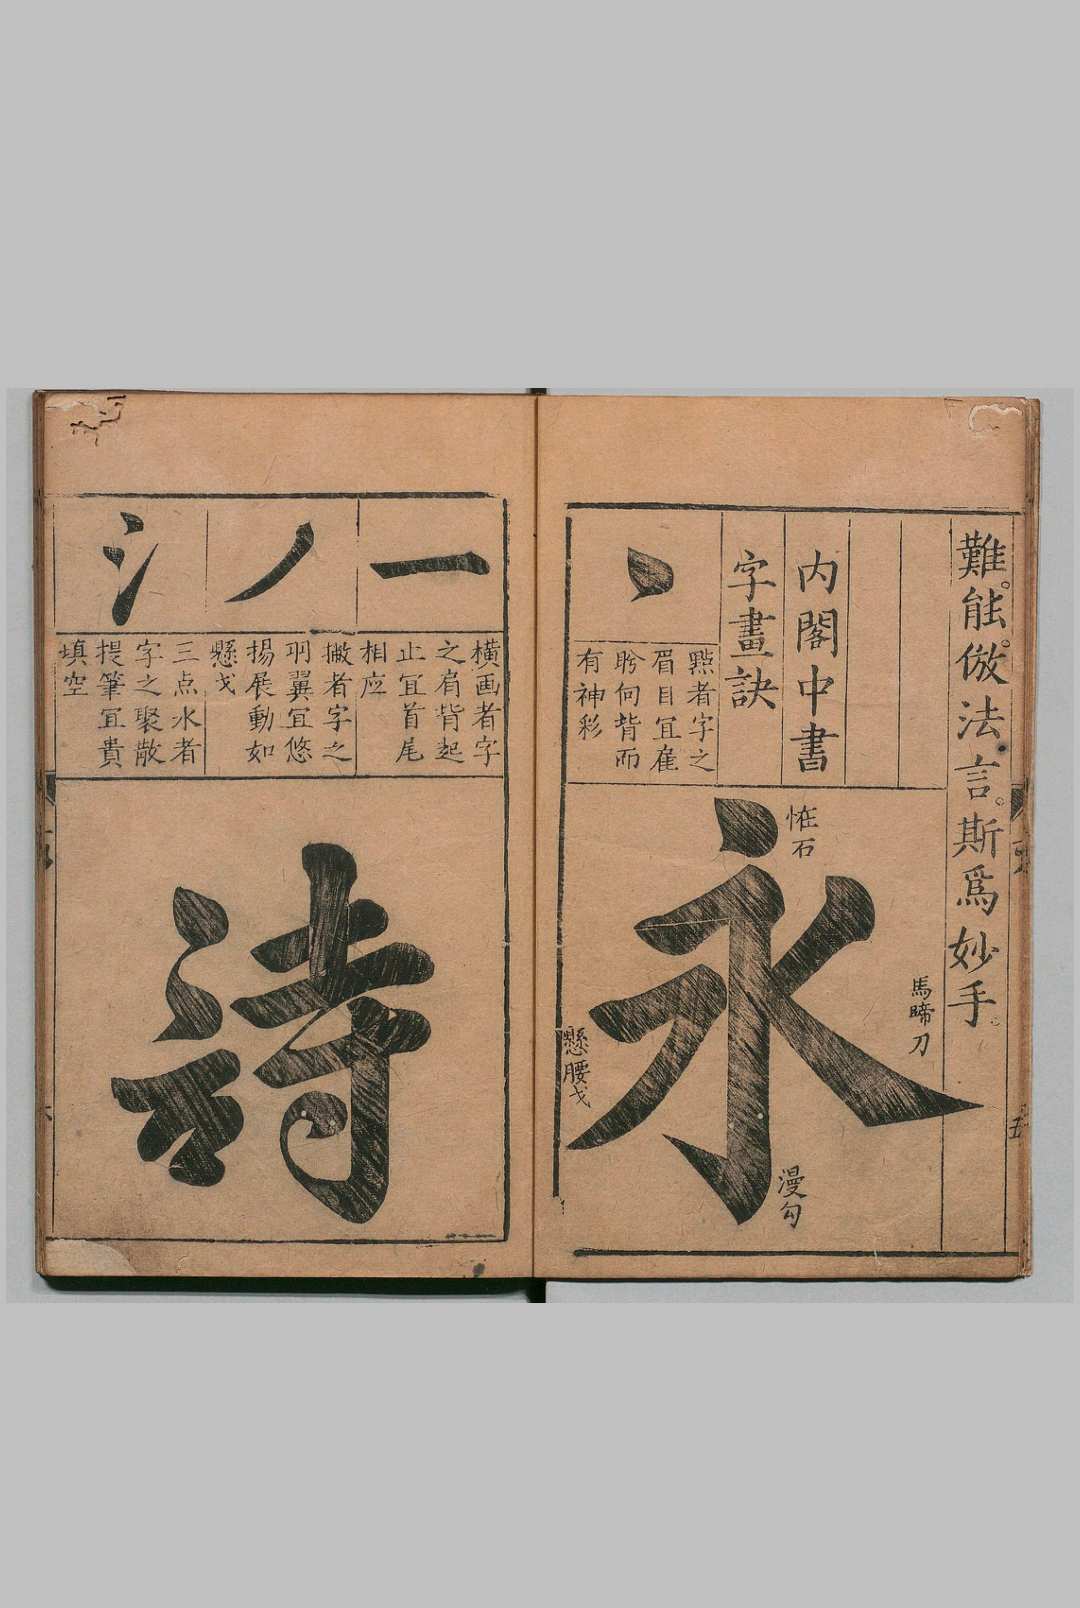 難能倣法言斯爲妙手
内閣中書
字畫訣
點者字之
眉目冝隹
盻向背而
有神彩
永
恠石
馬啼刀
懸腰戈
漫勾
五
一
横画者字
之肩背起
止冝首尾
相应
丿
撇者字之
羽翼冝悠
揚展動如
懸戈
氵
三点水者
字之聚散
提筆冝貴
填空
詩